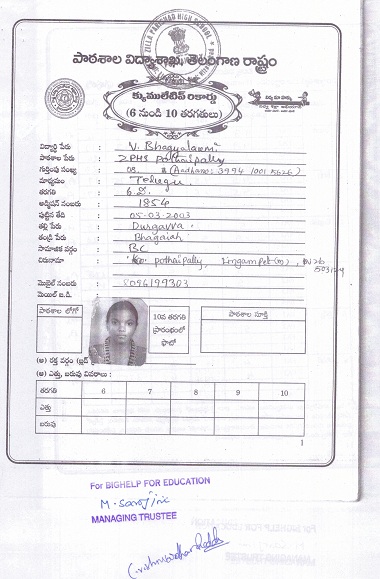 ZILLA PARISHAD HIGH SCHOOL
పాఠశాల విద్యాశాఖ, తెలంగాణ రాష్ట్రం
క్యుములేటివ్ రికార్డు
(6 నుండి 10 తరగతులు)
విద్యార్థి పేరు : V. Bhagyalaxmi
పాఠశాల పేరు : ZPHS Pothaipally
గుర్తింపు సంఖ్య : 08. (Aadhaar: 3994 1001 15626)
మాధ్యమం : Telugu
తరగతి :
అడ్మిషన్ నంబరు : 1854
పుట్టిన తేది : 05-03-2003
తల్లి పేరు : Durgavva
తండ్రి పేరు : Bhagaiah
సామాజిక వర్గం : BC
చిరునామా : pothaipally, Lingampet(m),
మొబైల్ నంబరు : 8096199303
మెయిల్ ఐ.డి. :
పాఠశాల లోగో
10వ తరగతి ప్రారంభంలో ఫొటో
పాఠశాల సూక్తి
(అ) రక్త వర్గం (బ్లడ్
(ఆ) ఎత్తు, బరువు వివరాలు :
తరగతి 6 7 8 9 10
ఎత్తు
బరువు
1
For BIGHELP FOR EDUCATION
MANAGING TRUSTEE